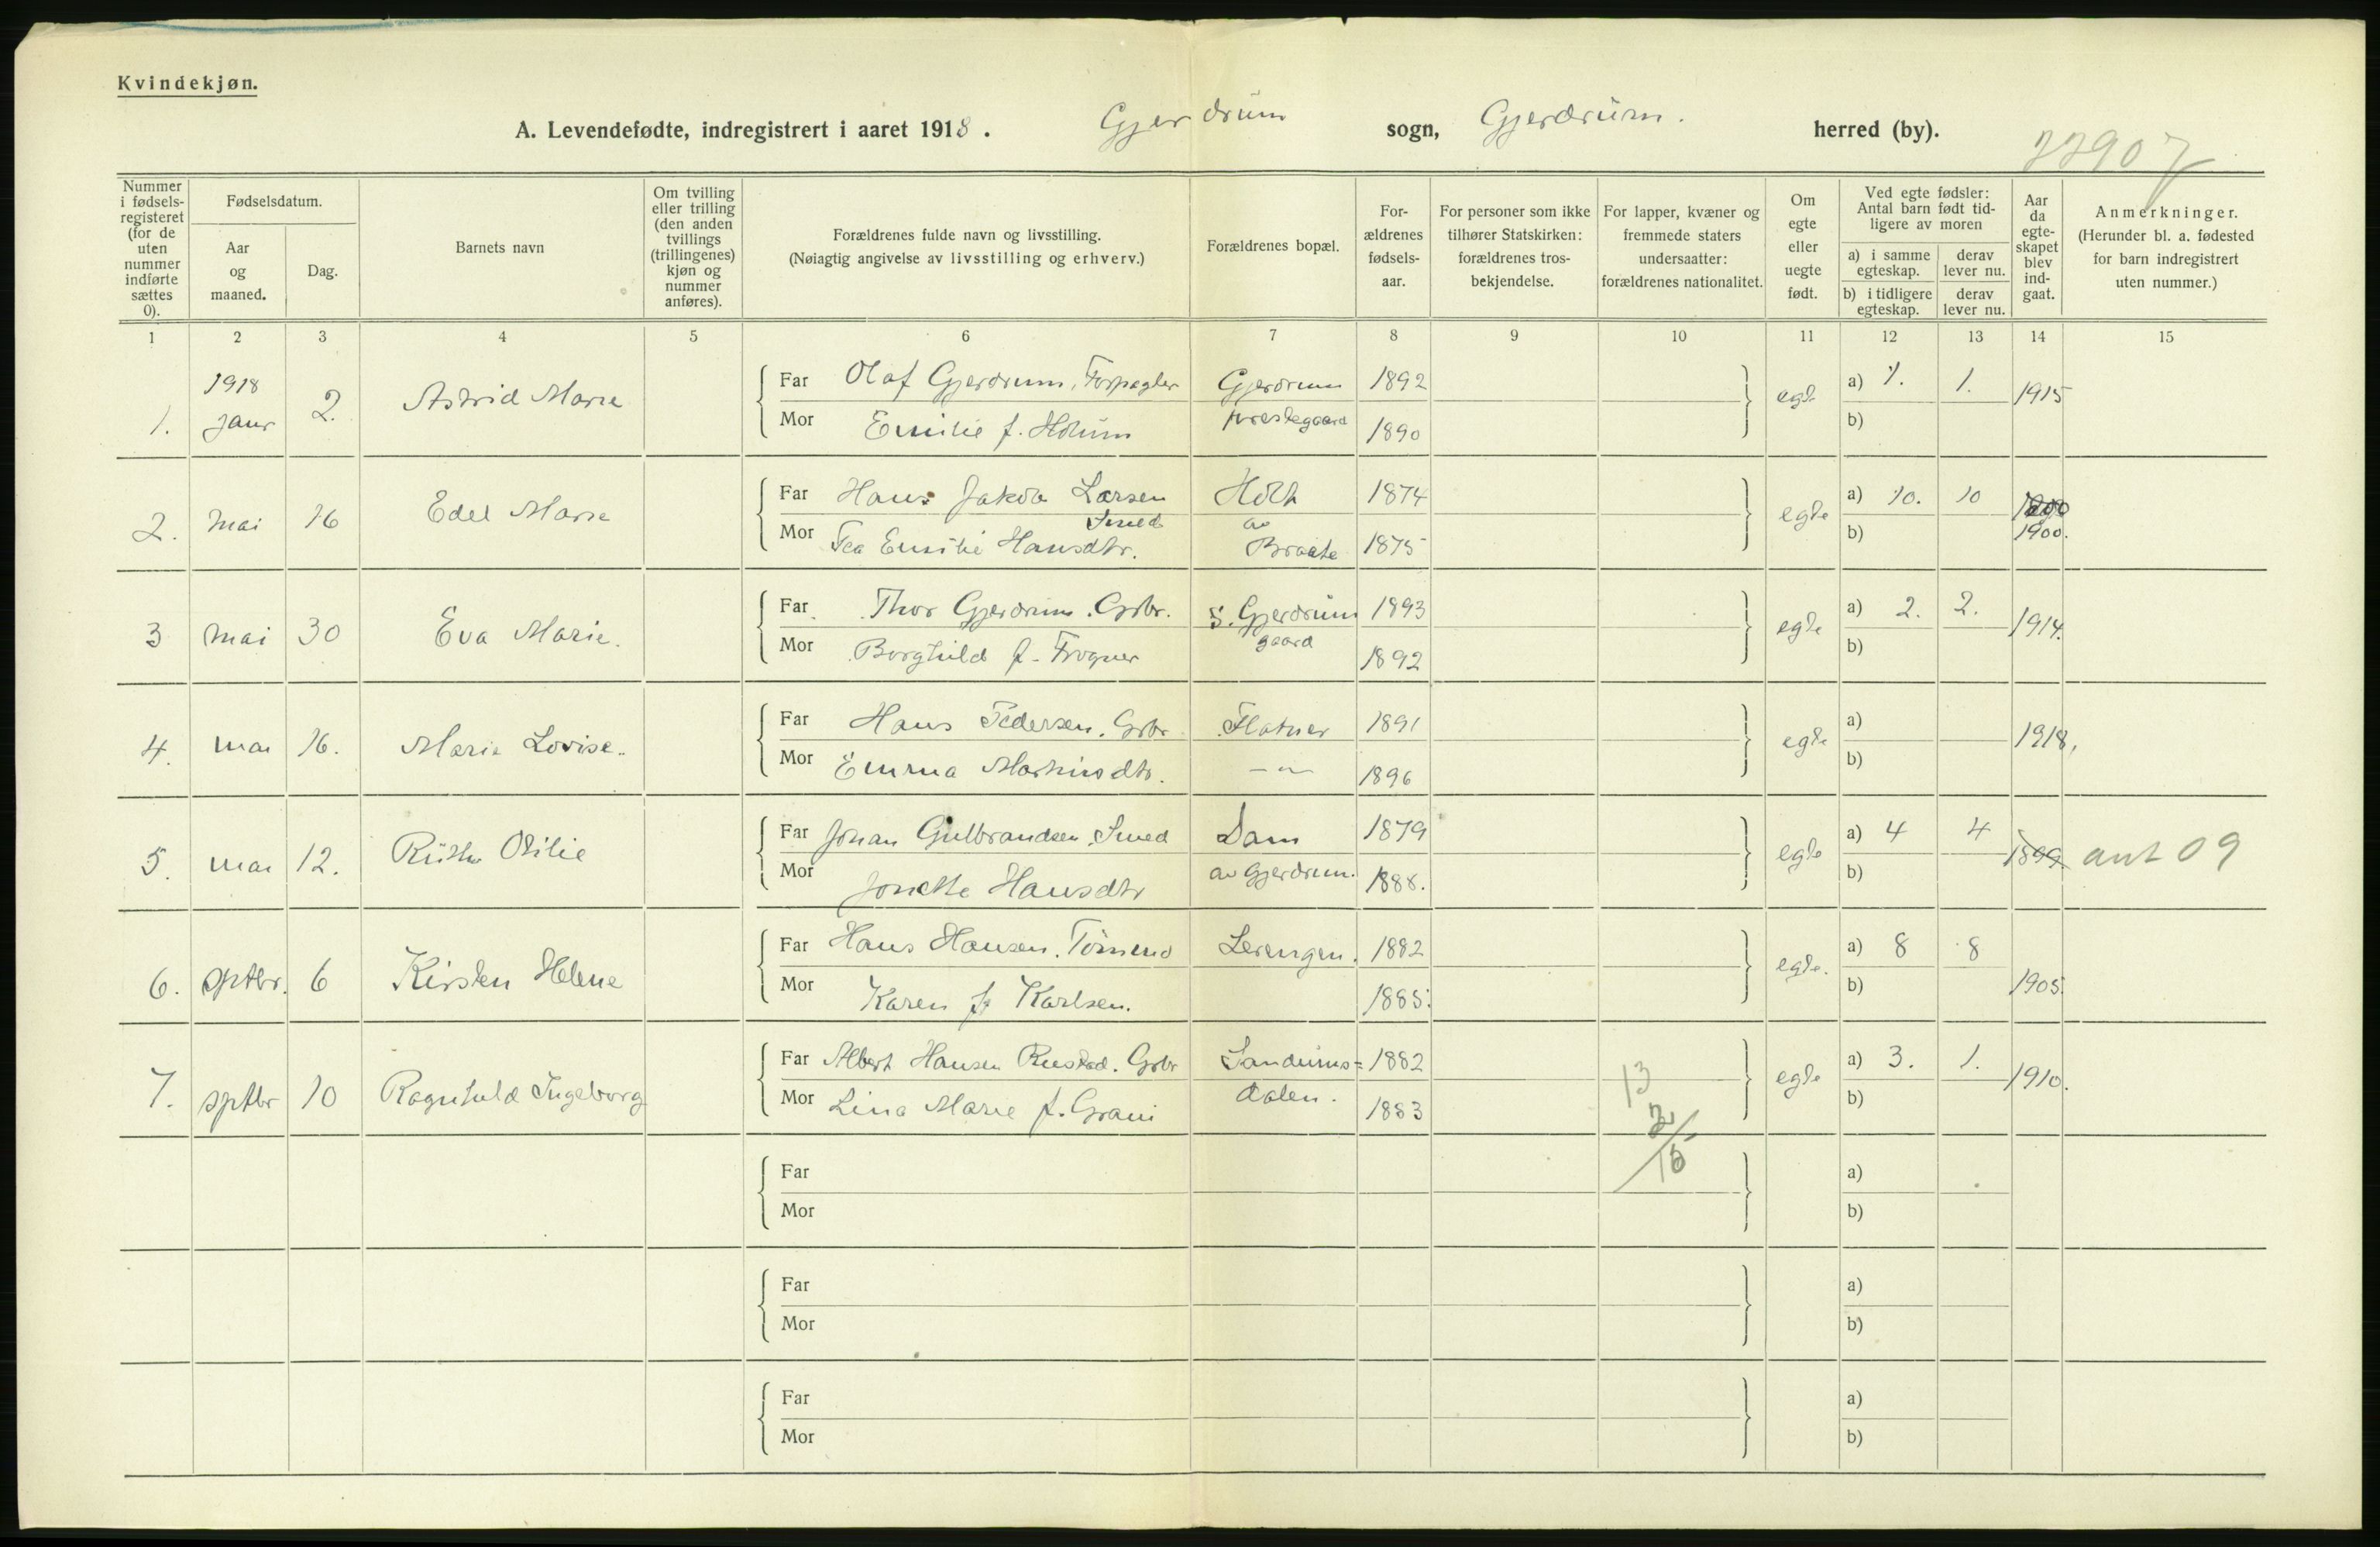 Kvindekjøn.
A. Levendefødte, indregistrert i aaret 1918. Gjerdrum sogn, Gjerdrum. herred (by).
22907
Nummer i fødsels-registeret (for de uten nummer indførte sættes 0).
Fødselsdatum.
Aar og maaned.
Dag.
Barnets navn
Om tvilling eller trilling (den anden tvillings (trillingenes) kjøn og nummer anføres).
Forældrenes fulde navn og livsstilling.
(Nøiagtig angivelse av livsstilling og erhverv.)
Forældrenes bopæl.
For-ældrenes fødsels-aar.
For personer som ikke tilhører Statskirken: forældrenes tros-bekjendelse.
For lapper, kvæner og fremmede staters undersaatter: forældrenes nationalitet.
Om egte eller uegte født.
Ved egte fødsler: Antal barn født tid-ligere av moren
a) i samme egteskap.
derav lever nu.
b) i tidligere egteskap.
derav lever nu.
Aar da egte-skapet blev ind-gaat.
Anmerkninger.
(Herunder bl. a. fødested for barn indregistrert uten nummer.)
1 2 3 4 5 6 7 8 9 10 11 12 13 14 15
1. 1918 Janr 2. Astrid Marie
Far Olaf Gjerdrum, Forpagter Gjerdrum 1892 egte a) 1. 1. 1915
Mor Emilie f. Holum prestegaard 1890 b)
2. mai 16 Edel Marie
Far Hans Jakob Larsen Smed Holt 1874 egte a) 10. 10 1900
Mor Tea Emilie Hansdtr. av Braate 1875 b) 1900.
3 mai 30 Eva Marie.
Far Thor Gjerdrum. Grbr. S. Gjerdrum 1893 egte a) 2. 2. 1914.
Mor Borghild f. Frogner gaard 1892 b)
4. mai 16. Marie Lovise.
Far Hans Pedersen. Grbr Flatner 1891 egte a) 1918.
Mor Emma Martinsdtr. -"- 1896 b)
5. mai 12. Ruth Otilie
Far Johan Gulbrandsen Smed Dam 1879 egte a) 4 4 1899 ant 09
Mor Jonette Hansdtr av Gjerdrum. 1888. b)
6. sptbr. 6 Kirsten Helene
Far Hans Hansen. Tømmo Lerengen. 1882 egte. a) 8 8 1905.
Mor Karen f. Karlsen. 1885. b)
7. sptbr 10 Ragnhild Ingeborg
Far Albert Hansen Rustad. Grbr Sandums= 1882 egte a) 3. 1. 1910.
Mor Lina Marie f. Grani dalen. 1883 b)
13
2/15
Far a)
Mor b)
Far a)
Mor b)
Far a)
Mor b)